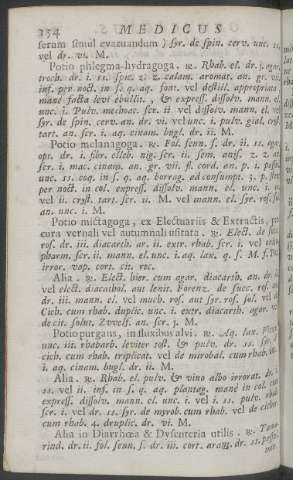 254 MEDICUS
serum simul evacuandum) syr. de spin. cerv. unc. ss,
vel dr. vi. M.
Potio phlegma-hydragoga. ℞. Rhab. el. dr. j. agar.
troch. dr. i. ss. spic. calam. aromat. an. gr. vii,
inf. per noct. in s. q. aq. font. vel destill. appropriata
mane facta levi ebullit. & express. dissolv. mann. el.
unc. i. Pulv. mechoac. scr. ii. vel dissolv. mann. el.
syr. de spin. cerv. an. dr. vi vel unc. i. pulv. gial.
tart. an. scr. i. aq. cinam. bugl. dr. ii. M.
Potio melanagoga. ℞. Fol. senn. s. dr. ii. ss. epit.
opt. dr. i. fibr. elleb. nig. scr. ii. sem. anis.
scr. i. mac. cinam. an. gr. vii. fl. cord. an. p. i.
unc. ss. coq. in s. q. aq. borrag. ad consumpt. 3. p.
per noct. in col. express. dissolv. mann. el. unc. i.
vel ii. cryst. tart. scr. ii. M. vel mann. el. syr. ros. sol.
an. unc. i. M.
Potio mictagoga, ex Electuariis & Extractis, pro
cura vernali vel autumnali usitata. ℞. Elect. de succ.
ros. dr. iii. diacarth. ar. ii. extr. rhab. scr. i. vel
pharm. scr. ii. mann. el. unc. i. aq. lax. q. s. M. f.
irror. vap. cort. cit. rec.
Alia. ℞. Elect. hier. cum agar. diacarth. an. dr.
vel elect. diacathol. aut lenit. Forenz. de succ. ros.
dr. iii. mann. el. vel much. ros. aut syr. ros. sol. vel
Cich. cum rhab. duplic. unc. i. extr. diacarth. agar.
de cit. solut. Zvvelf. an. scr. j. M.
Potio purgans, in fluxibus alvi. ℞. Aq. lax.
unc. iii. rhabarb. leviter tost. & pulv. dr. ss. syr.
cich. cum rhab. triplicat. vel de mirobal. cum rhab.
i. aq. cinam. bugl. dr. ii. M.
Alia. ℞. Rhab. el. pulv. & vino albo irrorat. dr. i.
ss. vel ii. inf. in s. q. aq. plantag. mane in col. cum
express. dissolv. mann. el. unc. i. vel i. ss. pulv. rhab.
scr. i. vel dr. ss. syr. de myrob. cum rhab. vel de cichor.
cum rhab. 4. druplic. dr. vi. M.
Alia in Diarrhœa & Dysenteria utilis. ℞.
rind. dr. ii. fol. senn. s. dr. iii. cort. dr. ss.